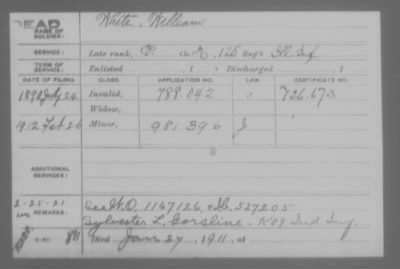 DEAD
NAME OF SOLDIER: White, William
SERVICE: Late rank, P. Co. A, 125 Reg't Ill. Inf.
TERM OF SERVICE: Enlisted , 1 ; Discharged , 1
DATE OF FILING. CLASS. APPLICATION NO. LAW. CERTIFICATE NO.
1890 July 24 Invalid, 789.042 726.673
Widow,
1912 Feb 26 Minor, 981 396 J
ADDITIONAL SERVICES:
2-25-21
REMARKS: 1167126, 527205
Sylvester L. Gorsline - K 89 Ind Inf.
Died Jan 27, 1911, at